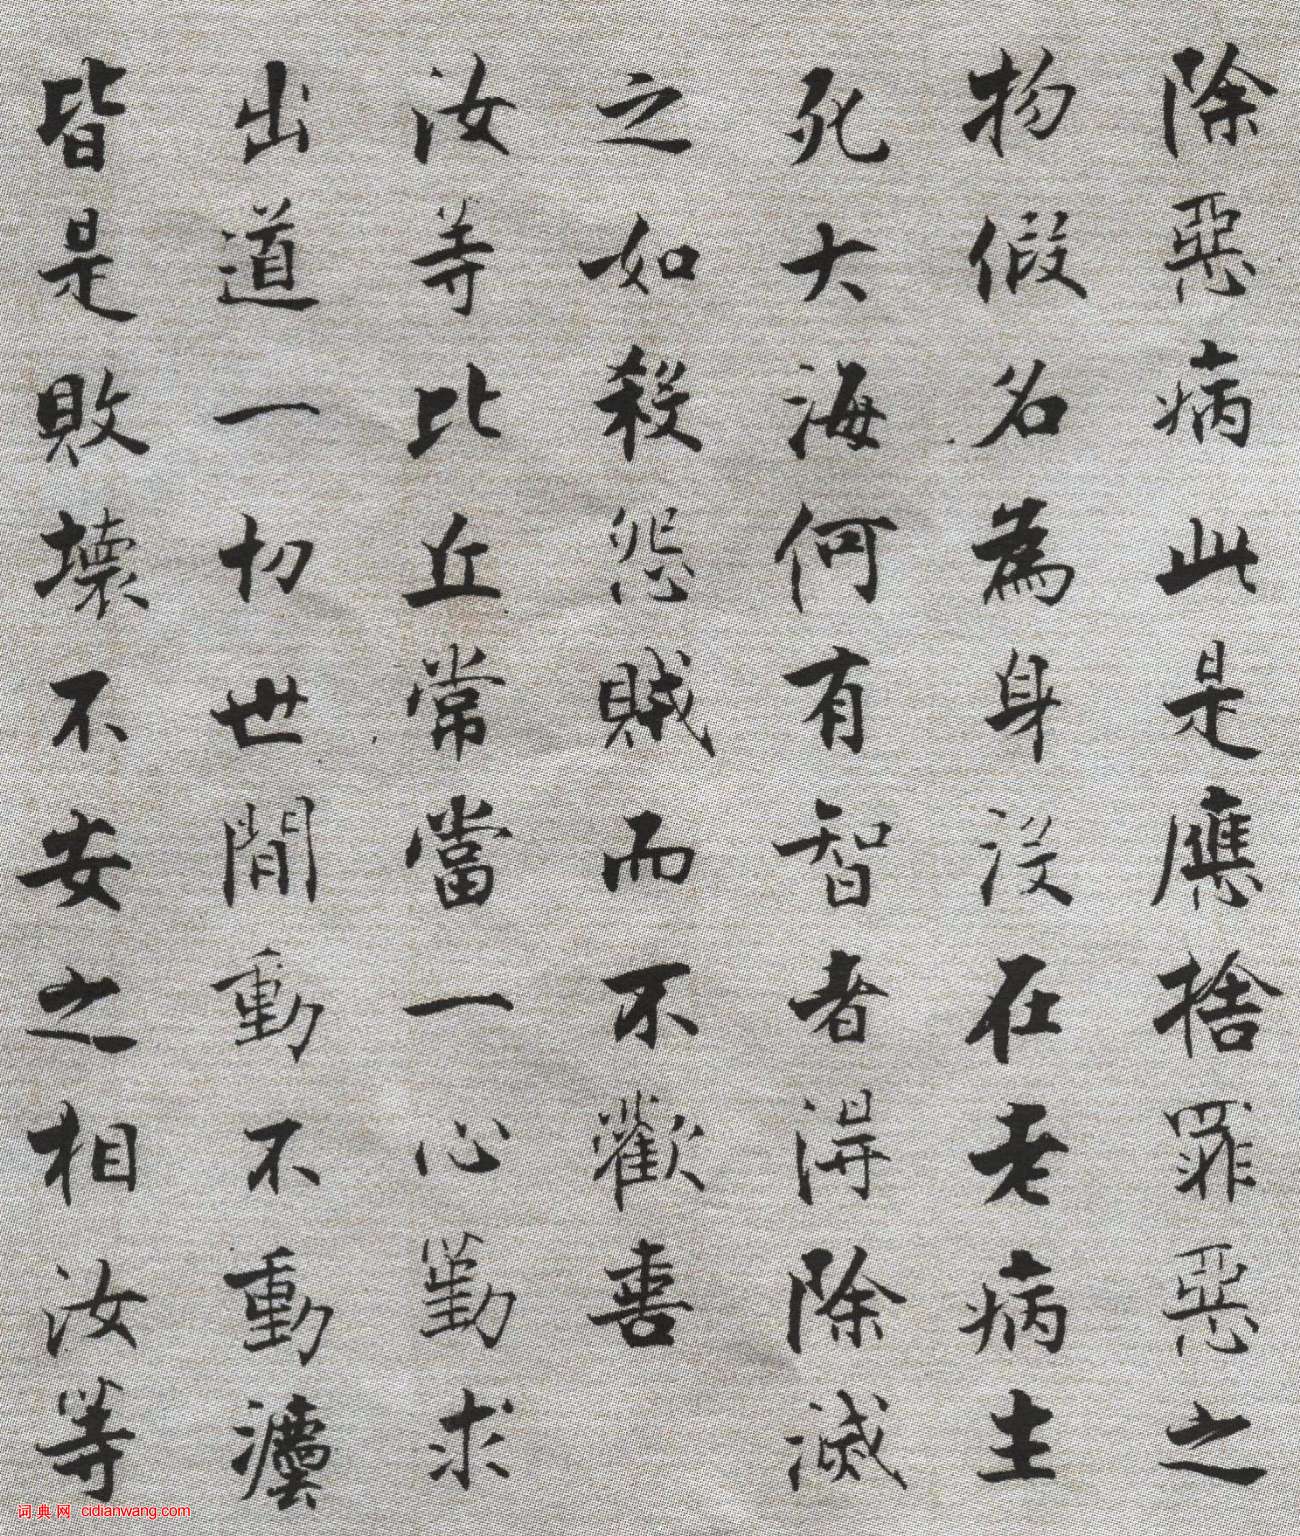 除惡病此是應捨罪惡之
物假名為身没在老病生
死大海何有智者得除滅
之如殺怨賊而不歡喜
汝等比丘常當一心勤求
出道一切世間動不動法
皆是敗壞不安之相汝等
词典网 cidianwang.com